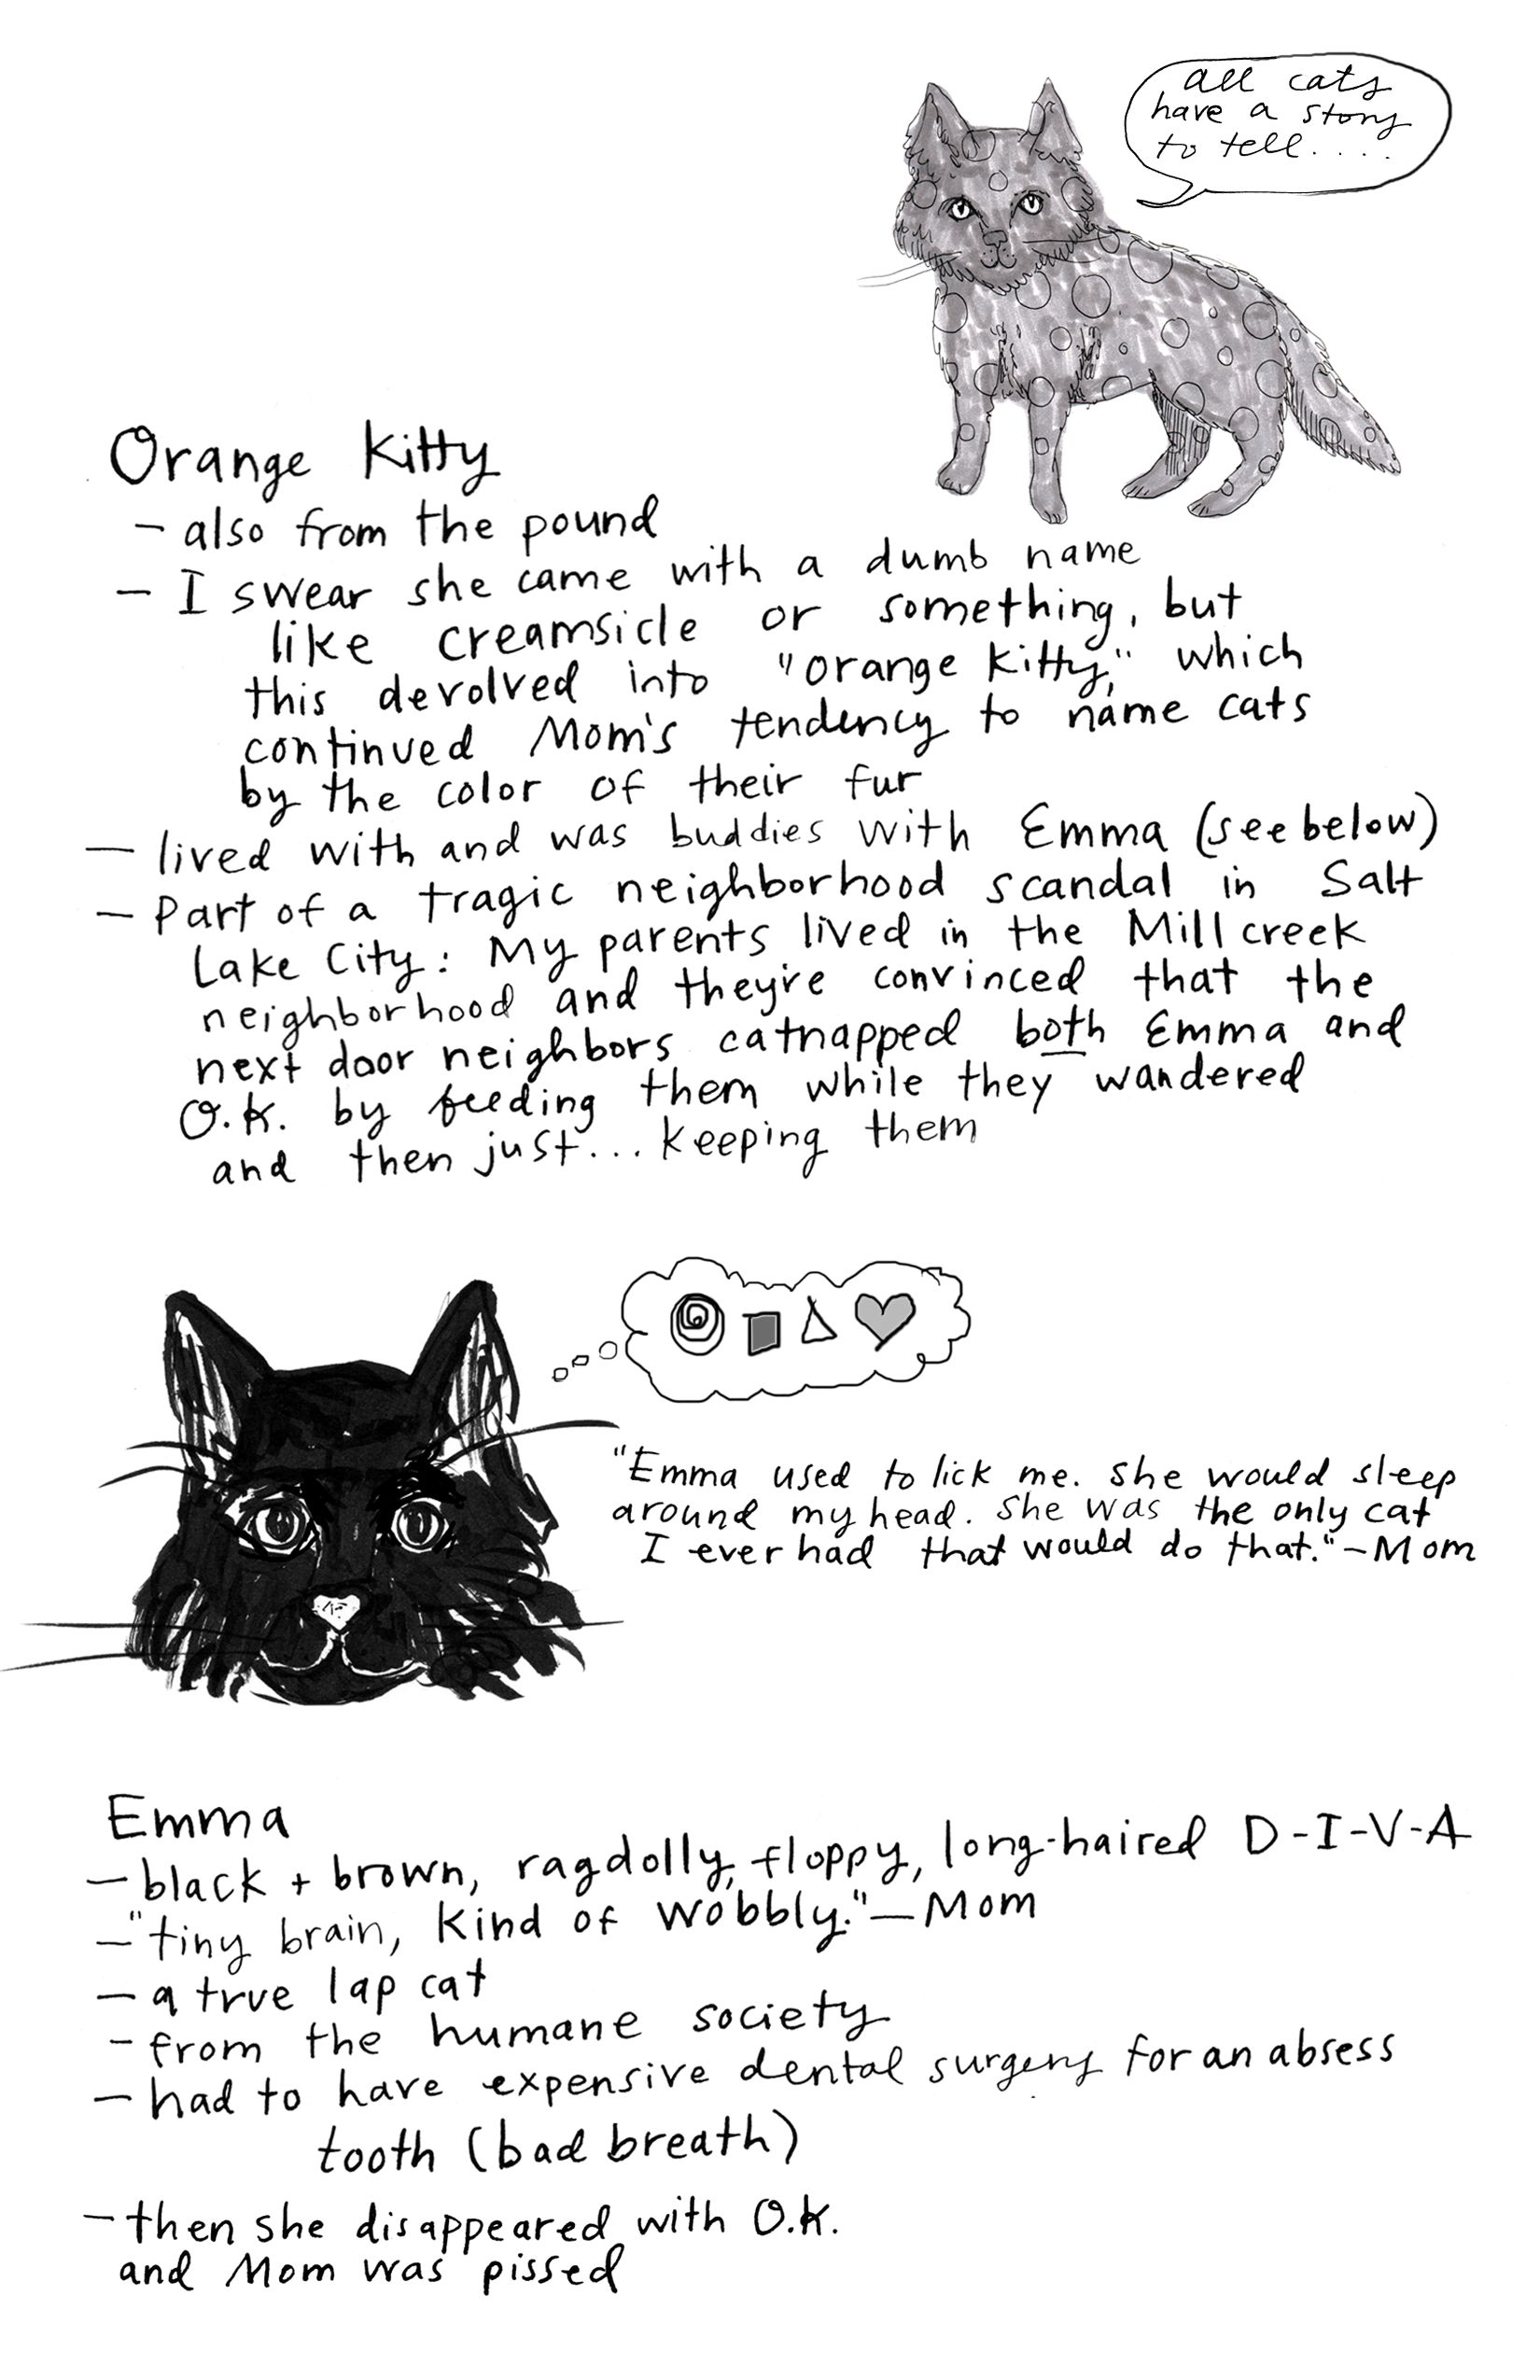 all cats
have a story
to tell....
Orange Kitty
- also from the pound
- I swear she came with a dumb name
like creamsicle or something, but
this devolved into "orange kitty," which
continued Mom's tendency to name cats
by the color of their fur
- lived with and was buddies with Emma (see below)
- Part of a tragic neighborhood scandal in Salt
Lake City: My parents lived in the Millcreek
neighborhood and they're convinced that the
next door neighbors catnapped both Emma and
O.K. by feeding them while they wandered
and then just...keeping them
"Emma used to lick me. She would sleep
around my head. She was the only cat
I ever had that would do that."-Mom
Emma
- black + brown, ragdolly, floppy, long-haired D-I-V-A
- "tiny brain, kind of wobbly."-Mom
- a true lap cat
- from the humane society
- had to have expensive dental surgery for an absess
tooth (bad breath)
- then she disappeared with O.K.
and Mom was pissed